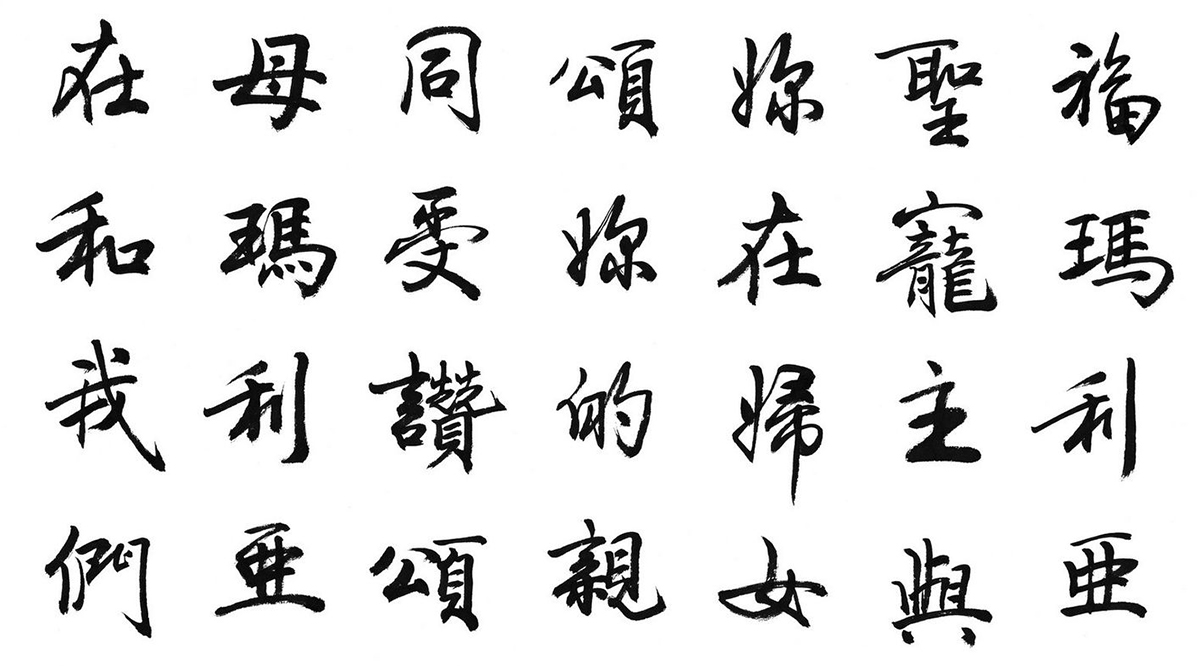 福瑪利亞
聖寵主與
妳在婦女
頌妳的親
同受讚頌
母瑪利亞
在和我們